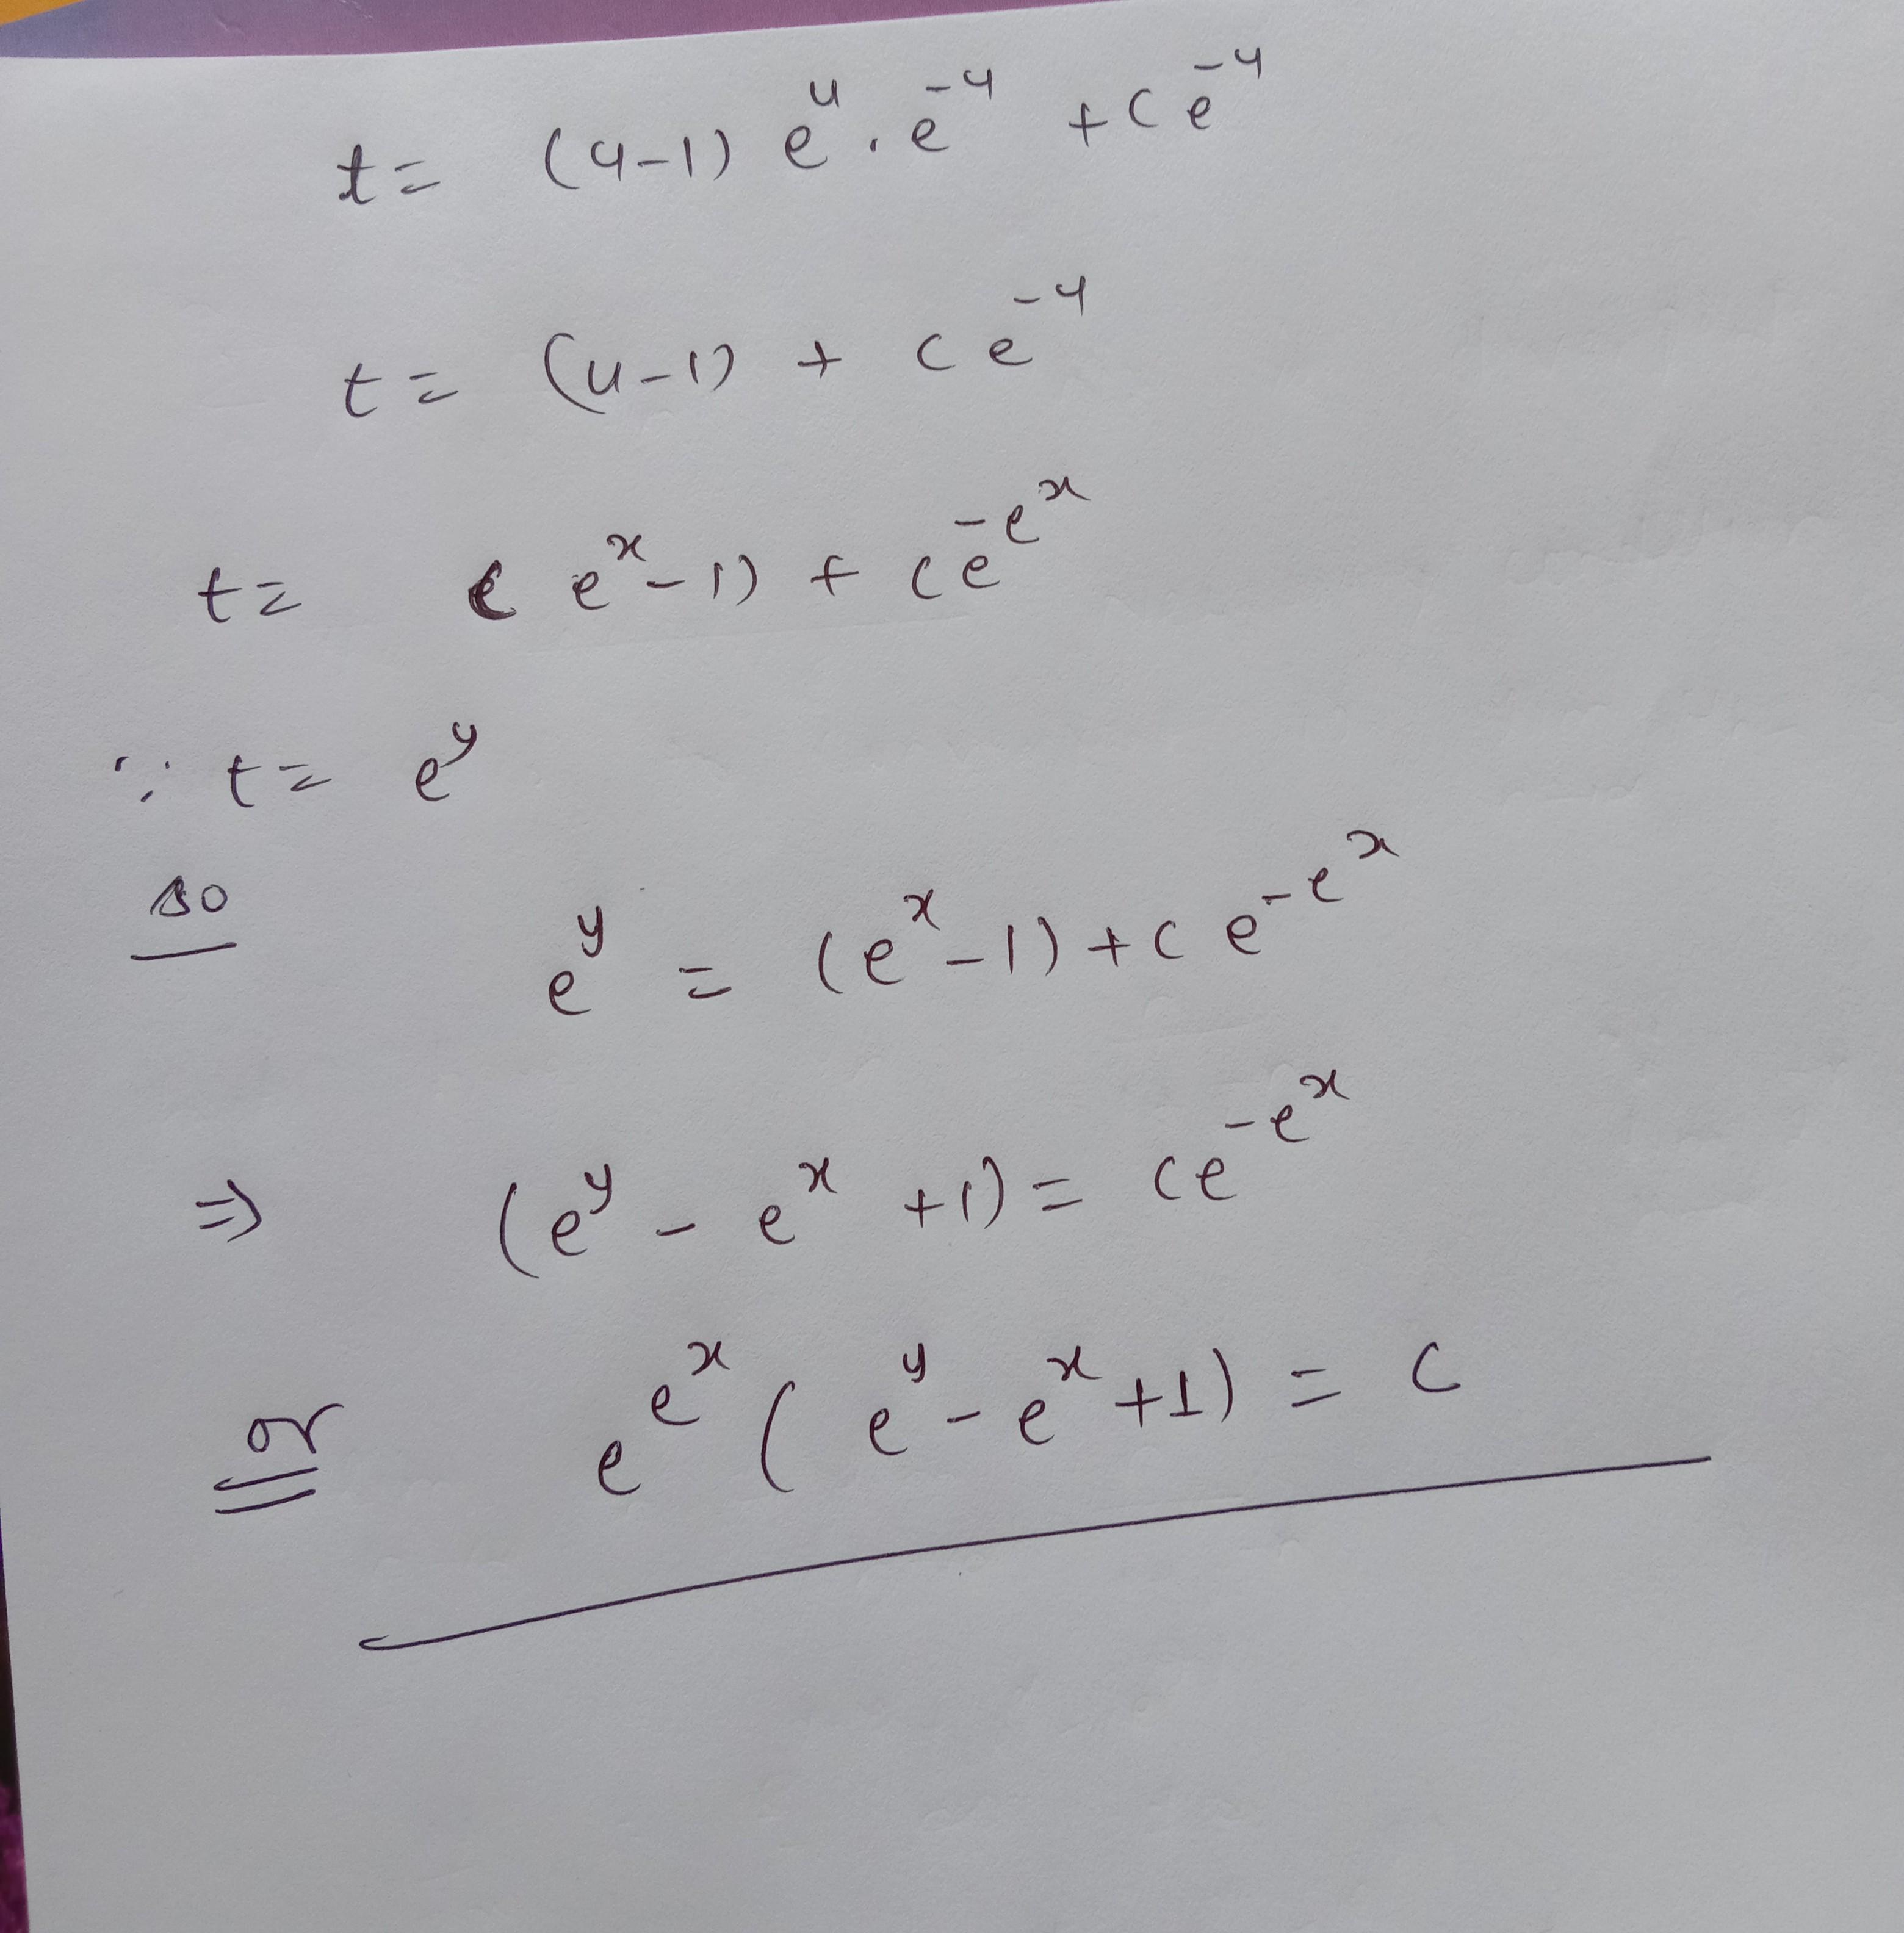 t = (u-1) e^u . e^-u + c e^-u
t = (u-1) + c e^-u
t = ( e^x - 1) + c e^-e^x
∵ t = e^y
so e^y = (e^x - 1) + c e^-e^x
⇒ (e^y - e^x + 1) = c e^-e^x
or e^e^x ( e^y - e^x + 1) = c